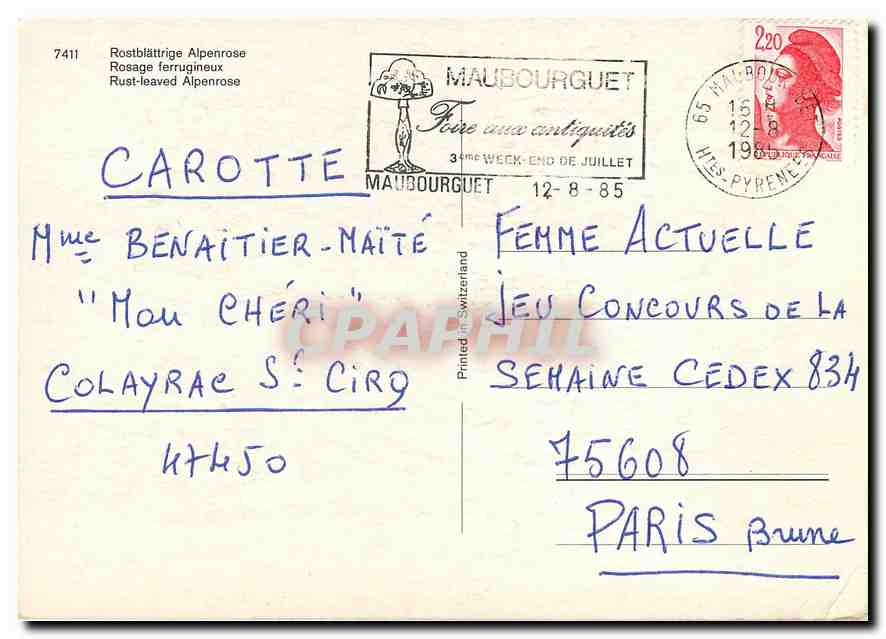 7411 Rostblättrige Alpenrose
Rosage ferrugineux
Rust-leaved Alpenrose
MAUBOURGUET
Foire aux antiquités
3ème WEEK-END DE JUILLET
MAUBOURGUET 12-8-85
2,20
65 MAUBOURGUET
16
12-8
1985
HTES-PYRENEES
POSTES
REPUBLIQUE FRANÇAISE
CAROTTE
Mme BENAITIER-MAÏTÉ
"Mon CHÉRI"
COLAYRAC St CIRQ
47450
Printed in Switzerland
FEMME ACTUELLE
JEU CONCOURS DE LA
SEMAINE CEDEX 834
75608
PARIS Brune
CPAPHIL